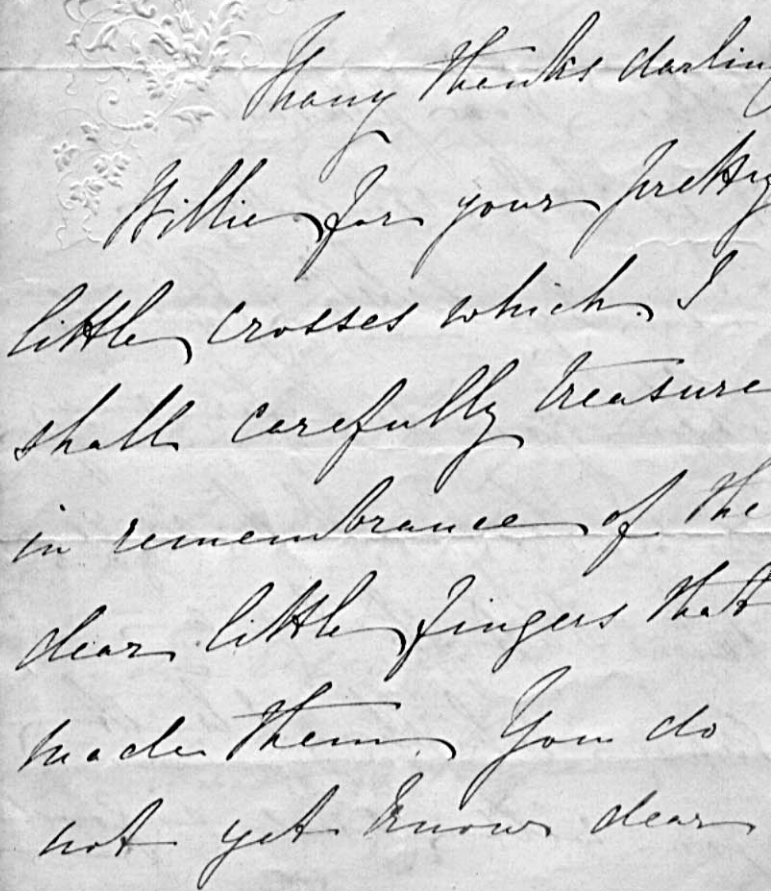 Many thanks darling
Willie for your pretty
little crosses which I
shall carefully treasure
in remembrance of the
dear little fingers that
made them. You do
not yet know dear